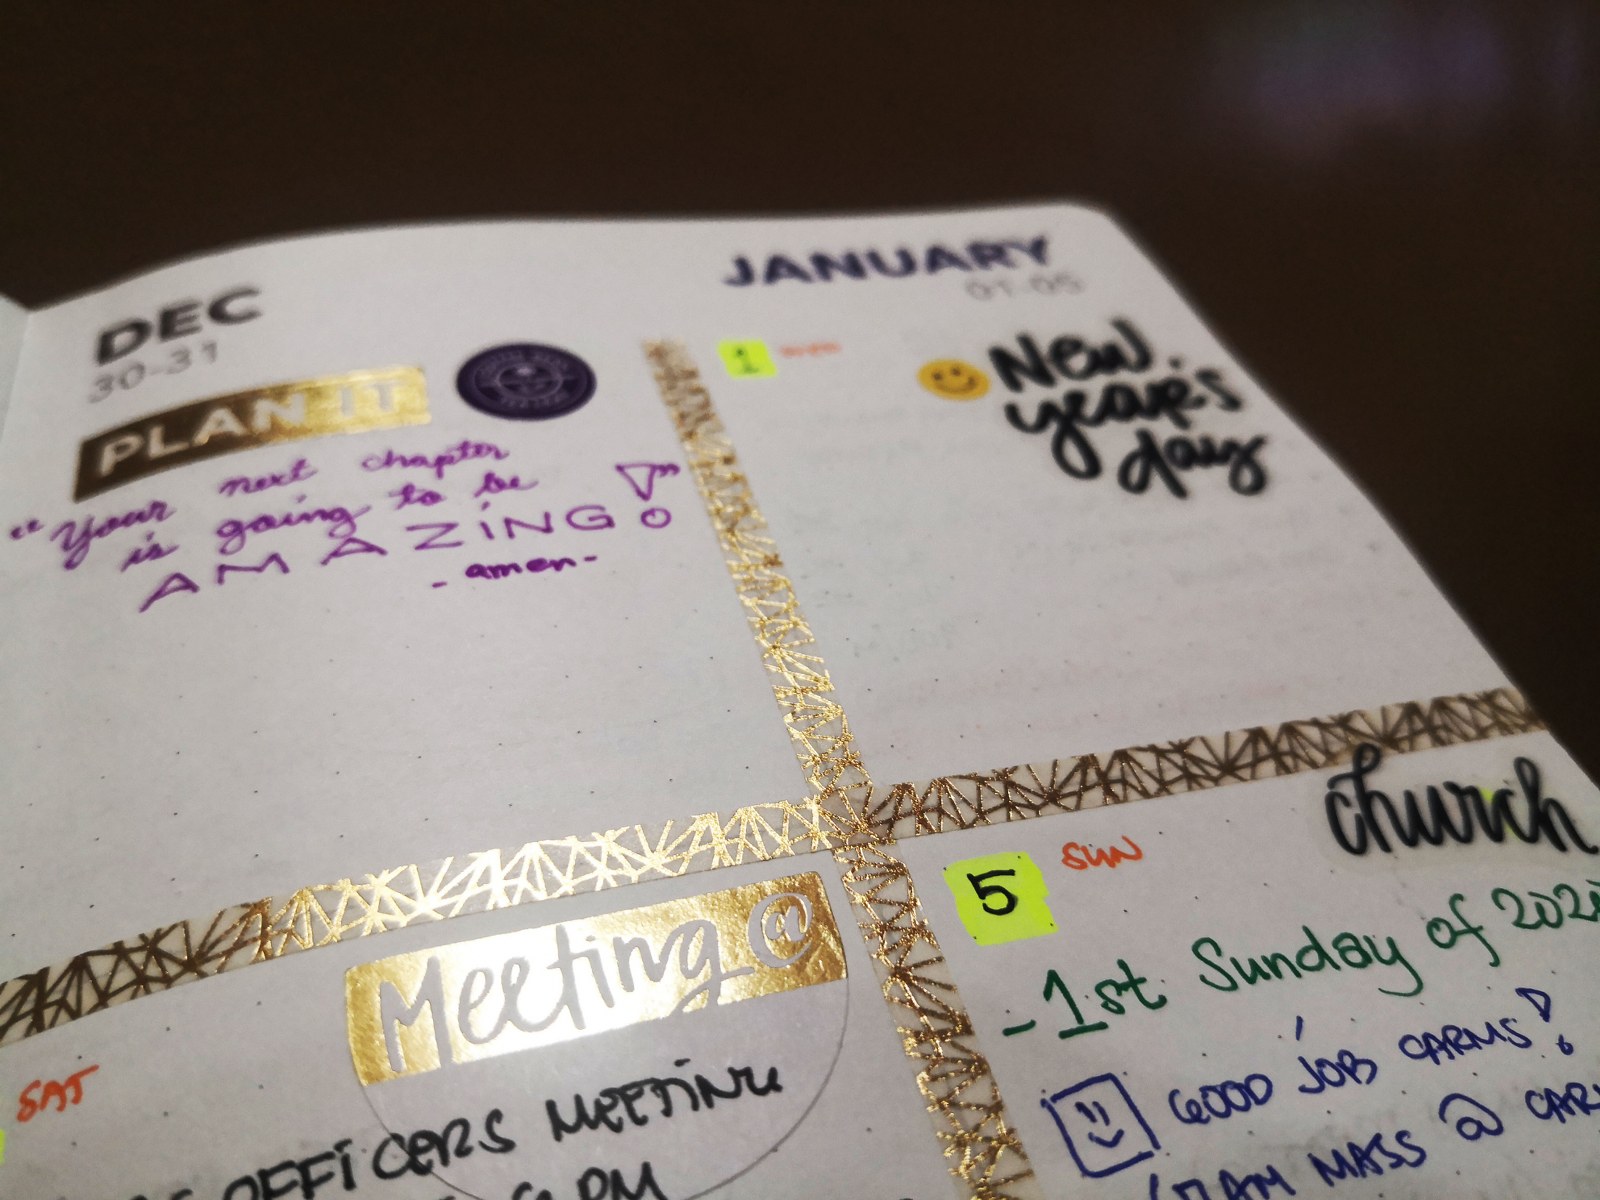 DEC
30-31
PLAN IT
"Your next chapter
is going to be
AMAZING!"
- amen -
JANUARY
01-05
1 WED
New
year's
day
SAT
Meeting @
OFFICERS MEETING
PM
church
5 SUN
- 1st Sunday of 2020
GOOD JOB CARMS!
AM MASS @